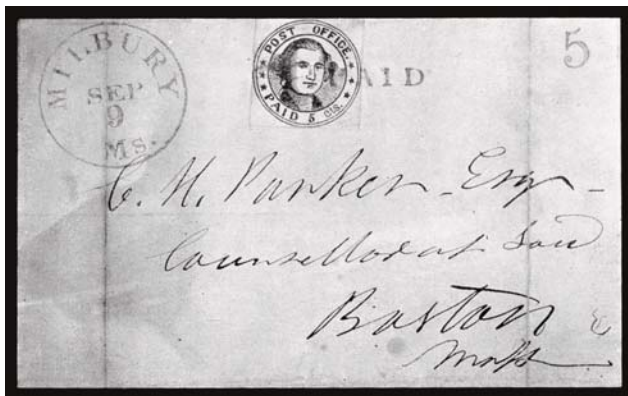 MILBURY
SEP
9
MS.
POST OFFICE.
PAID 5 cts.
PAID
5
C. H. Parker Esqr
Counsellor at Law
Boston
Mass